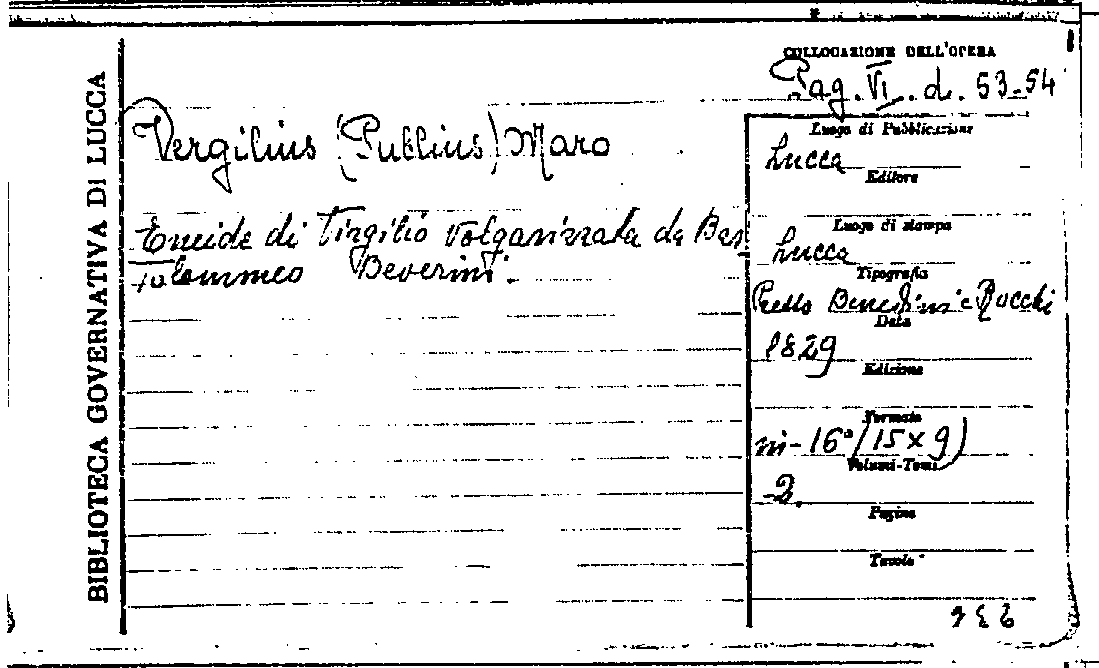 BIBLIOTECA GOVERNATIVA DI LUCCA
COLLOCAZIONE DELL'OPERA
Pag. VI. d. 53-54
Vergilius (Publius) Maro
Eneide di Virgilio volgarizzata da Bar
tolommeo Beverini.
Luogo di Pubblicazione
Lucca
Editore
Luogo di stampa
Lucca
Tipografia
Presso Benedini e Rocchi
Data
1829
Edizione
Formato
in-16° (15 x 9)
Volumi-Tomi
2.
Pagine
Tavole